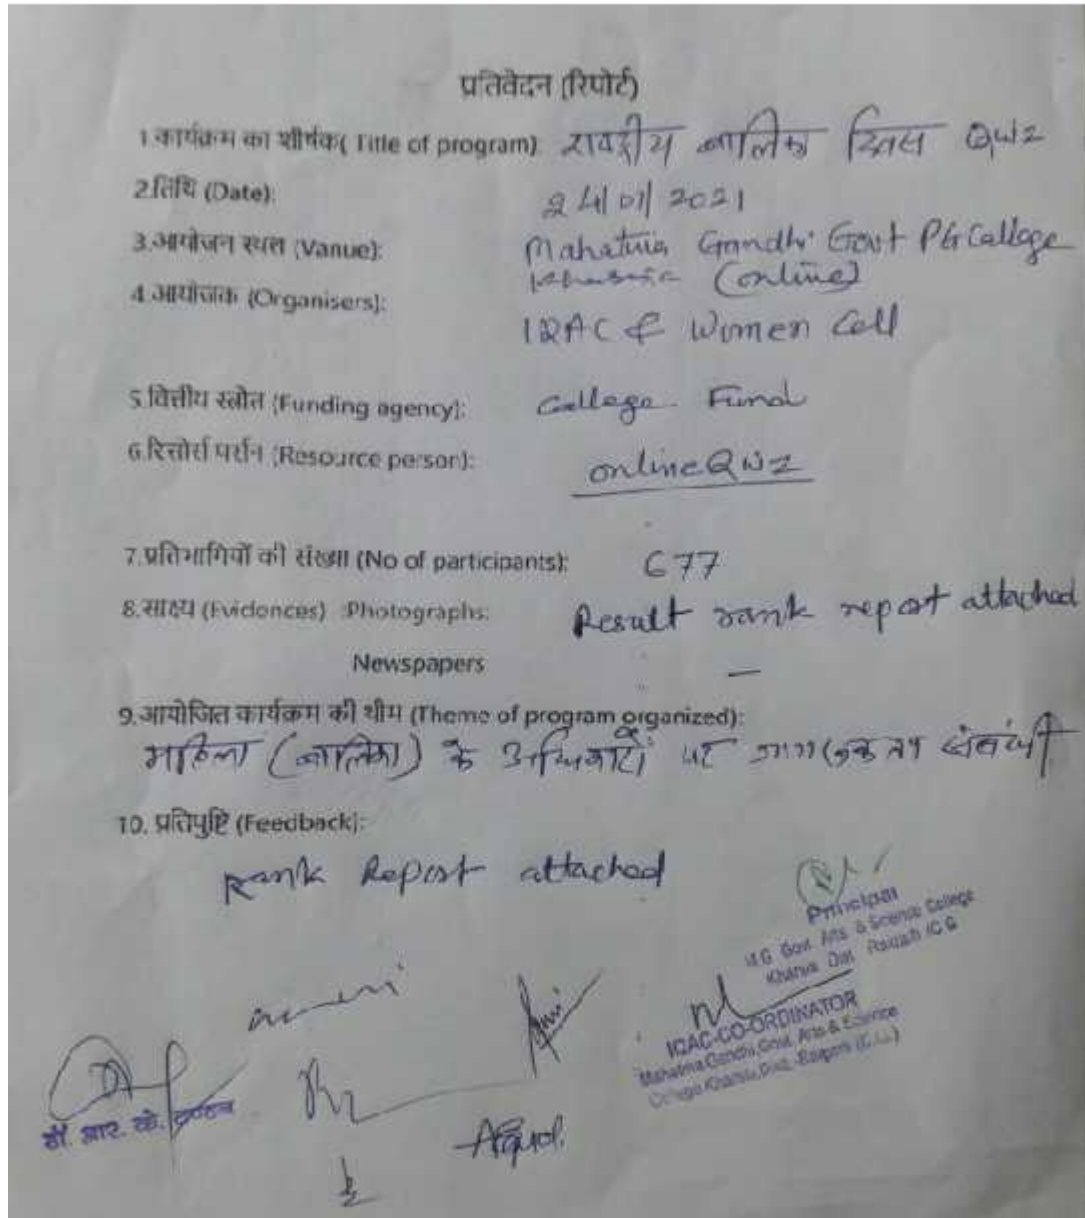 प्रतिवेदन (रिपोर्ट)
1.कार्यक्रम का शीर्षक( Title of program): राष्ट्रीय बालिका दिवस Quiz
2.तिथि (Date): 24/01/2021
3.आयोजन स्थल (Vanue): Mahatma Gandhi Govt PG College
Kharsia (online)
4.आयोजक (Organisers):
IQAC & Women Cell
5.वित्तीय स्त्रोत (Funding agency): College Fund
6.रिसोर्स पर्सन (Resource person): online Quiz
7.प्रतिभागियों की संख्या (No of participants): 677
8.साक्ष्य (Evidences) :Photographs: Result rank report attached
Newspapers —
9.आयोजित कार्यक्रम की थीम (Theme of program organized):
महिला (बालिका) के अधिकारों पर जागरूकता संबंधी
10. प्रतिपुष्टि (Feedback):
Rank Report attached
Principal
M.G. Govt. Arts & Science College
Kharsia Dist. Raigarh (C.G.
IQAC-CO-ORDINATOR
Mahatma Gandhi Govt. Arts & Science
College Kharsia, Dist.-Raigarh (C.G.)
डॉ. आर. के.